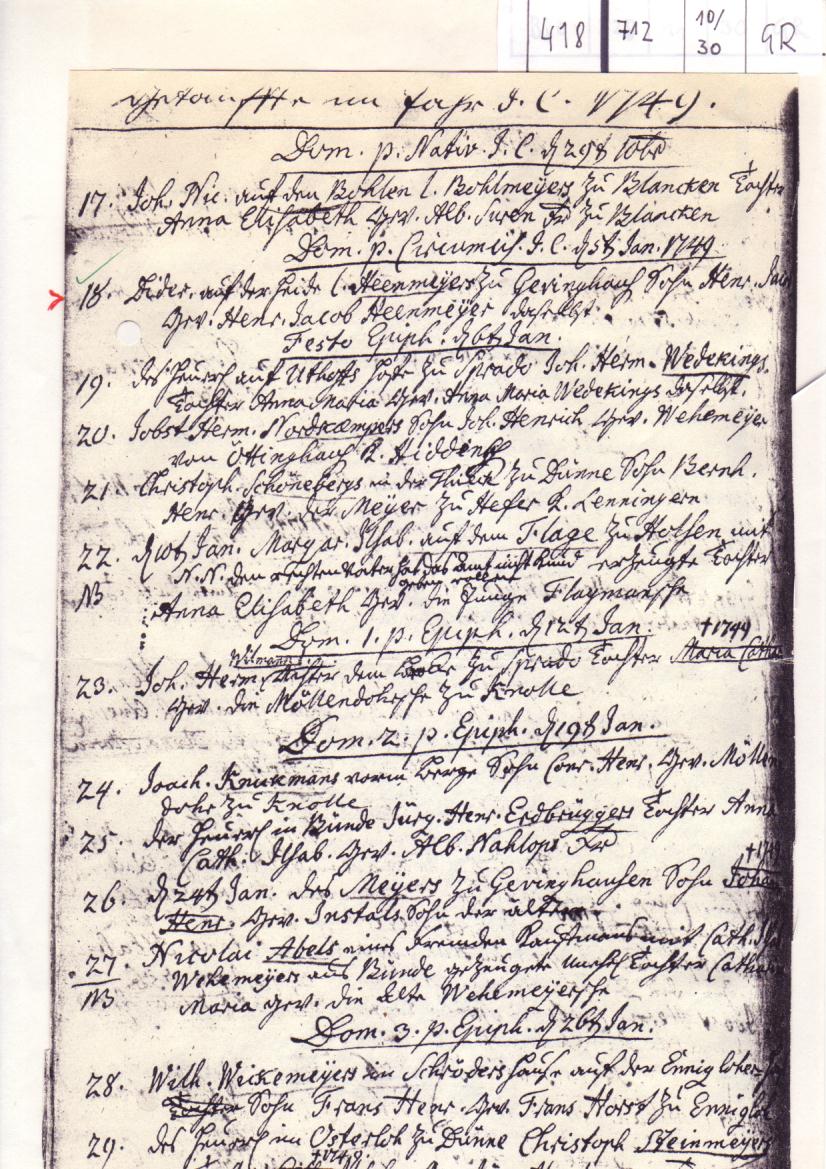 418 712 10/30 GR
Getauffte im Jahr J. C. 1749.
Dom. p. Nativ. J. C. d 29t Xbr
17. Joh. Nic. auf den Bohlen l. Bohlmeyers zu Blancken Tochter
Anna Elisabeth Gev. Alb. Fr zu Blancken
Dom. p. Circumcis. J. C. d 5t Jan. 1749
18. Dider. auf der Heide l. Heenmeyers zu Gevinghaus Sohn Henr. Jac
Gev. Henr. Jacob Heenmeyer daselbst.
Festo Epiph. d 6t Jan.
19. des Heuerl auf Uthoffs Hofe zu Sprado Joh. Herm. Wedekings
Tochter Anna Maria Gev. Anna Maria Wedekings daselbst.
20. Jobst Herm. Nordkempers Sohn Joh. Henrich Gev. Wehemeyer
von Öttinghaus K. Hidden
21. Christoph Schönebergs in der zu Dünne Sohn Bernh.
Henr. Gev. der Meyer zu Hefer K. Lenningern
22. d 10t Jan. Margar. Ilsab. auf dem Flage zu Holsen mit
N. N. den rechten Vater hat das amt nicht kund erzeugte Tochter
geben wollen
NB Anna Elisabeth Gev. die Junge Flaymansche
Dom. 1. p. Epiph. d 12t Jan. †1749
Wilmanns
23. Joh. Herm. dem zu Sprado Tochter Maria Cath
Gev. die Möllendohrsche zu Knolle
Dom. 2. p. Epiph. d 19t Jan.
24. Joach. Knickmans vorm Berge Sohn Conr. Henr. Gev. Möllen
dohr zu Knolle
25. der Heuerl in Bünde Jürg. Henr. Erdbrüggers Tochter Anna
Cath. Ilsab. Gev. Alb. Nahlops Fr
†1749
26. d 24t Jan. des Meyers zu Gevinghausen Sohn Johan
Henr. Gev. Sohn der älteste
27. Nicolai Abels eines fremden Kauffmans mit Cath.
NB Wehemeyers aus Bünde gezeugete unehl Tochter Cathar
Maria Gev. die Alte Wehemeyersche
Dom. 3. p. Epiph. d 26t Jan.
28. Wilh. Wickemeyers in Schröders Hause auf der Ennigloher
Sohn Frans Henr. Gev. Frans Horst zu Ennigloh
29. des Heuerl im Osterloh zu Dünne Christoph Steinmeyers
†1749.